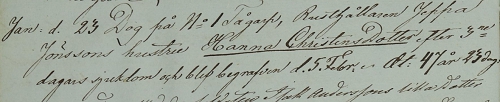 Jan: d. 23 Dog på No 1 Sågarp, Rusthållaren Jeppa
Jönssons hustru Hanna Christins Dotter, efter 3ne
dagars sjukdom och blef begrafven d. 5 Febr. Æt: 47 år 23 dag.
Anderssons lilla Dotter